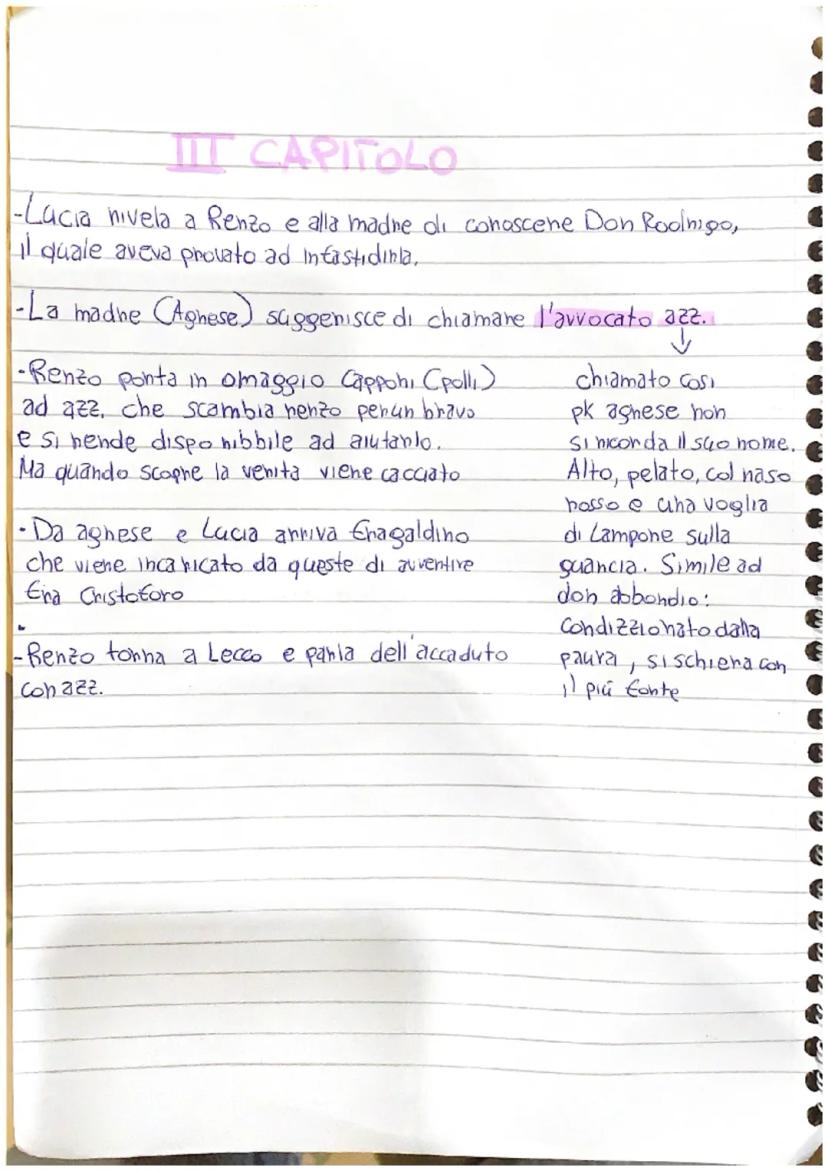 III CAPITOLO
-Lucia rivela a Renzo e alla madre di conoscere Don Rodrigo,
il quale aveva provato ad infastidirla.
-La madre (Agnese) suggerisce di chiamare l'avvocato azz.
↓
-Renzo porta in omaggio Capponi (polli)
ad azz, che scambia renzo per un bravo
e si rende disponibbile ad aiutarlo.
Ma quando scopre la verita viene cacciato
-Da agnese e Lucia arriva fragaldino
che viene incaricato da queste di avvertire
fra Cristoforo
-Renzo torna a Lecco e parla dell'accaduto
con azz.
chiamato così
pk agnese non
si ricorda il suo nome.
Alto, pelato, col naso
rosso e una voglia
di Lampone sulla
guancia. Simile ad
don abbondio:
condizzionato dalla
paura, si schiera con
il più forte